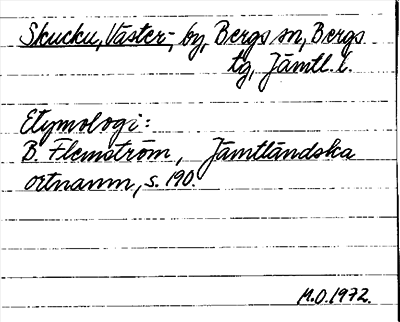 Skucku, Väster-, by, Bergs sn, Bergs
tg, Jämtl. l.
Etymologi:
B. Flemström, Jämtländska
ortnamn, s. 190.
M.O.1972.